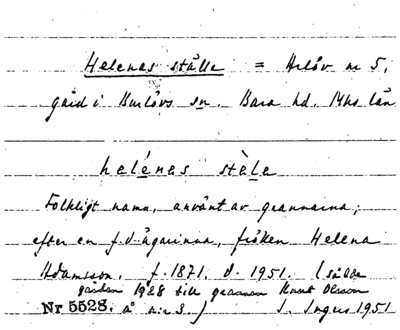 Helenas ställe = Arlöv nr 5,
gård i Burlövs sn. Bara hd. Mhs län
helénas stèle
Folkligt namn, använt av grannarna;
efter en f.d. ägarinna, fröken Helena
Adamsson, f. 1871, d. 1951. (sålde
gården 1928 till grannen Knut Olsson
Nr 5528. å nr 3.) S. Ingers 1951